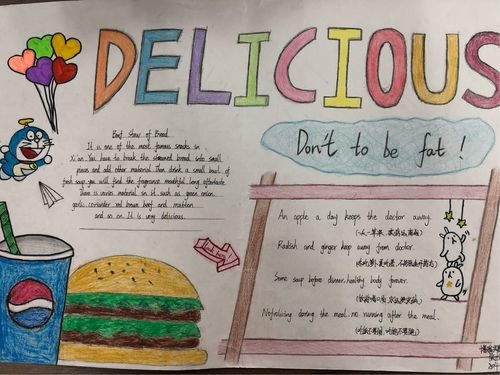 DELICIOUS
Don't to be fat!
Beef Stew of Bread
It is one of the most famous snacks in
Xi'an. You have to break the steamed bread into small
pieces and add other material. Then drink a small bowl of
fresh soup, you will find the fragrance mouthful, long aftertaste.
There is various material in it, such as green onion,
garlic, coriander and brown beef and mutton
and so on. It is very delicious.
An apple a day keeps the doctor away.
(一天一苹果,疾病远离我)
Radish and ginger keep away from doctor.
Some soup before dinner, healthy body forever.
No talking during the meal, no running after the meal.